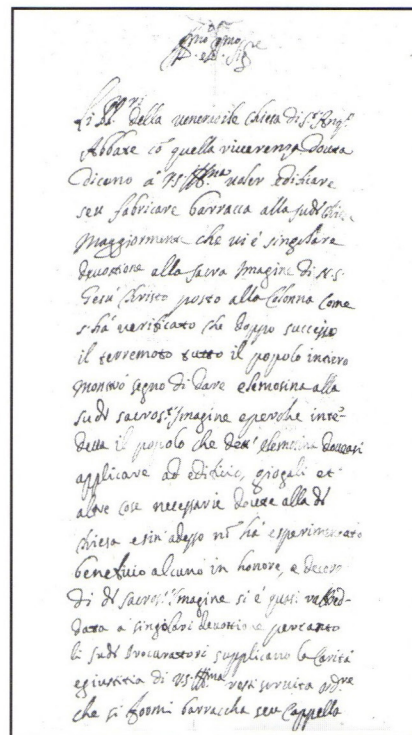 Ill.mo e Rmo Sig.re
Li Pro.ri della venerabile Chiesa di S.to Ant.o
Abbate cõ quella riverenza dovuta
diceno à V.S. Ill.ma voler edificare
seu fabricare barracca alla sud.a Chiesa
Maggiormente che vi è singolare
devottione alla sacra Imagine di N.S.
Giesù Christo posto alla Colonna come
s'hà verificato che doppo successo
il terremoto tutto il popolo intiero
mostrò segno di dare elemosina alla
sud.a sacros.ta Imagine e perche inten-
deva il popolo che dett' elemosina dovevasi
applicare ad edificio, giogali et
altre cose necessarie dovute alla d.a
Chiesa e sin'adesso nõ hà esperimentato
beneficio alcuno in honore, e decoro
di d.a sacros.ta Imagine si è quasi
data a singolari devottione pertanto
li sud.i Procuratori supplicano la Carità
e giustitia di V.S. Ill.ma resti servita ord.re
che si formi barraccha seu Cappella